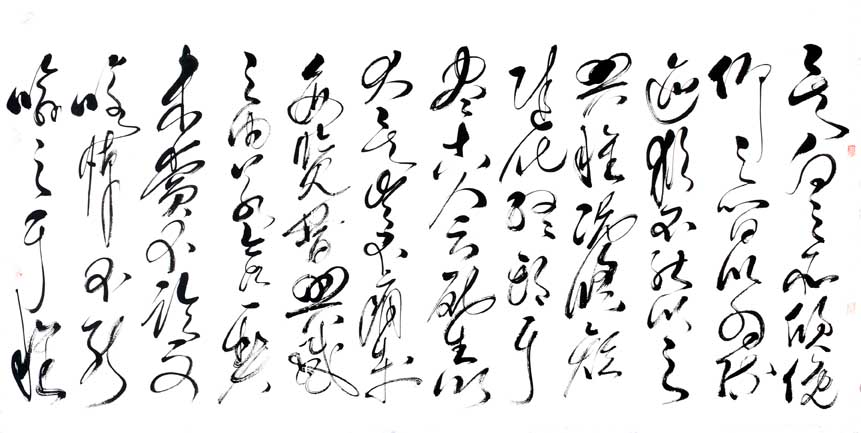 矣向之所欣俛
仰之間以為陳
迹猶不能以之
興懷況脩短
隨化終期於
盡古人云死生亦
大矣豈不痛哉
每覽昔興感
之由若合一契
未嘗不臨文
嗟悼不能
喻之於懷